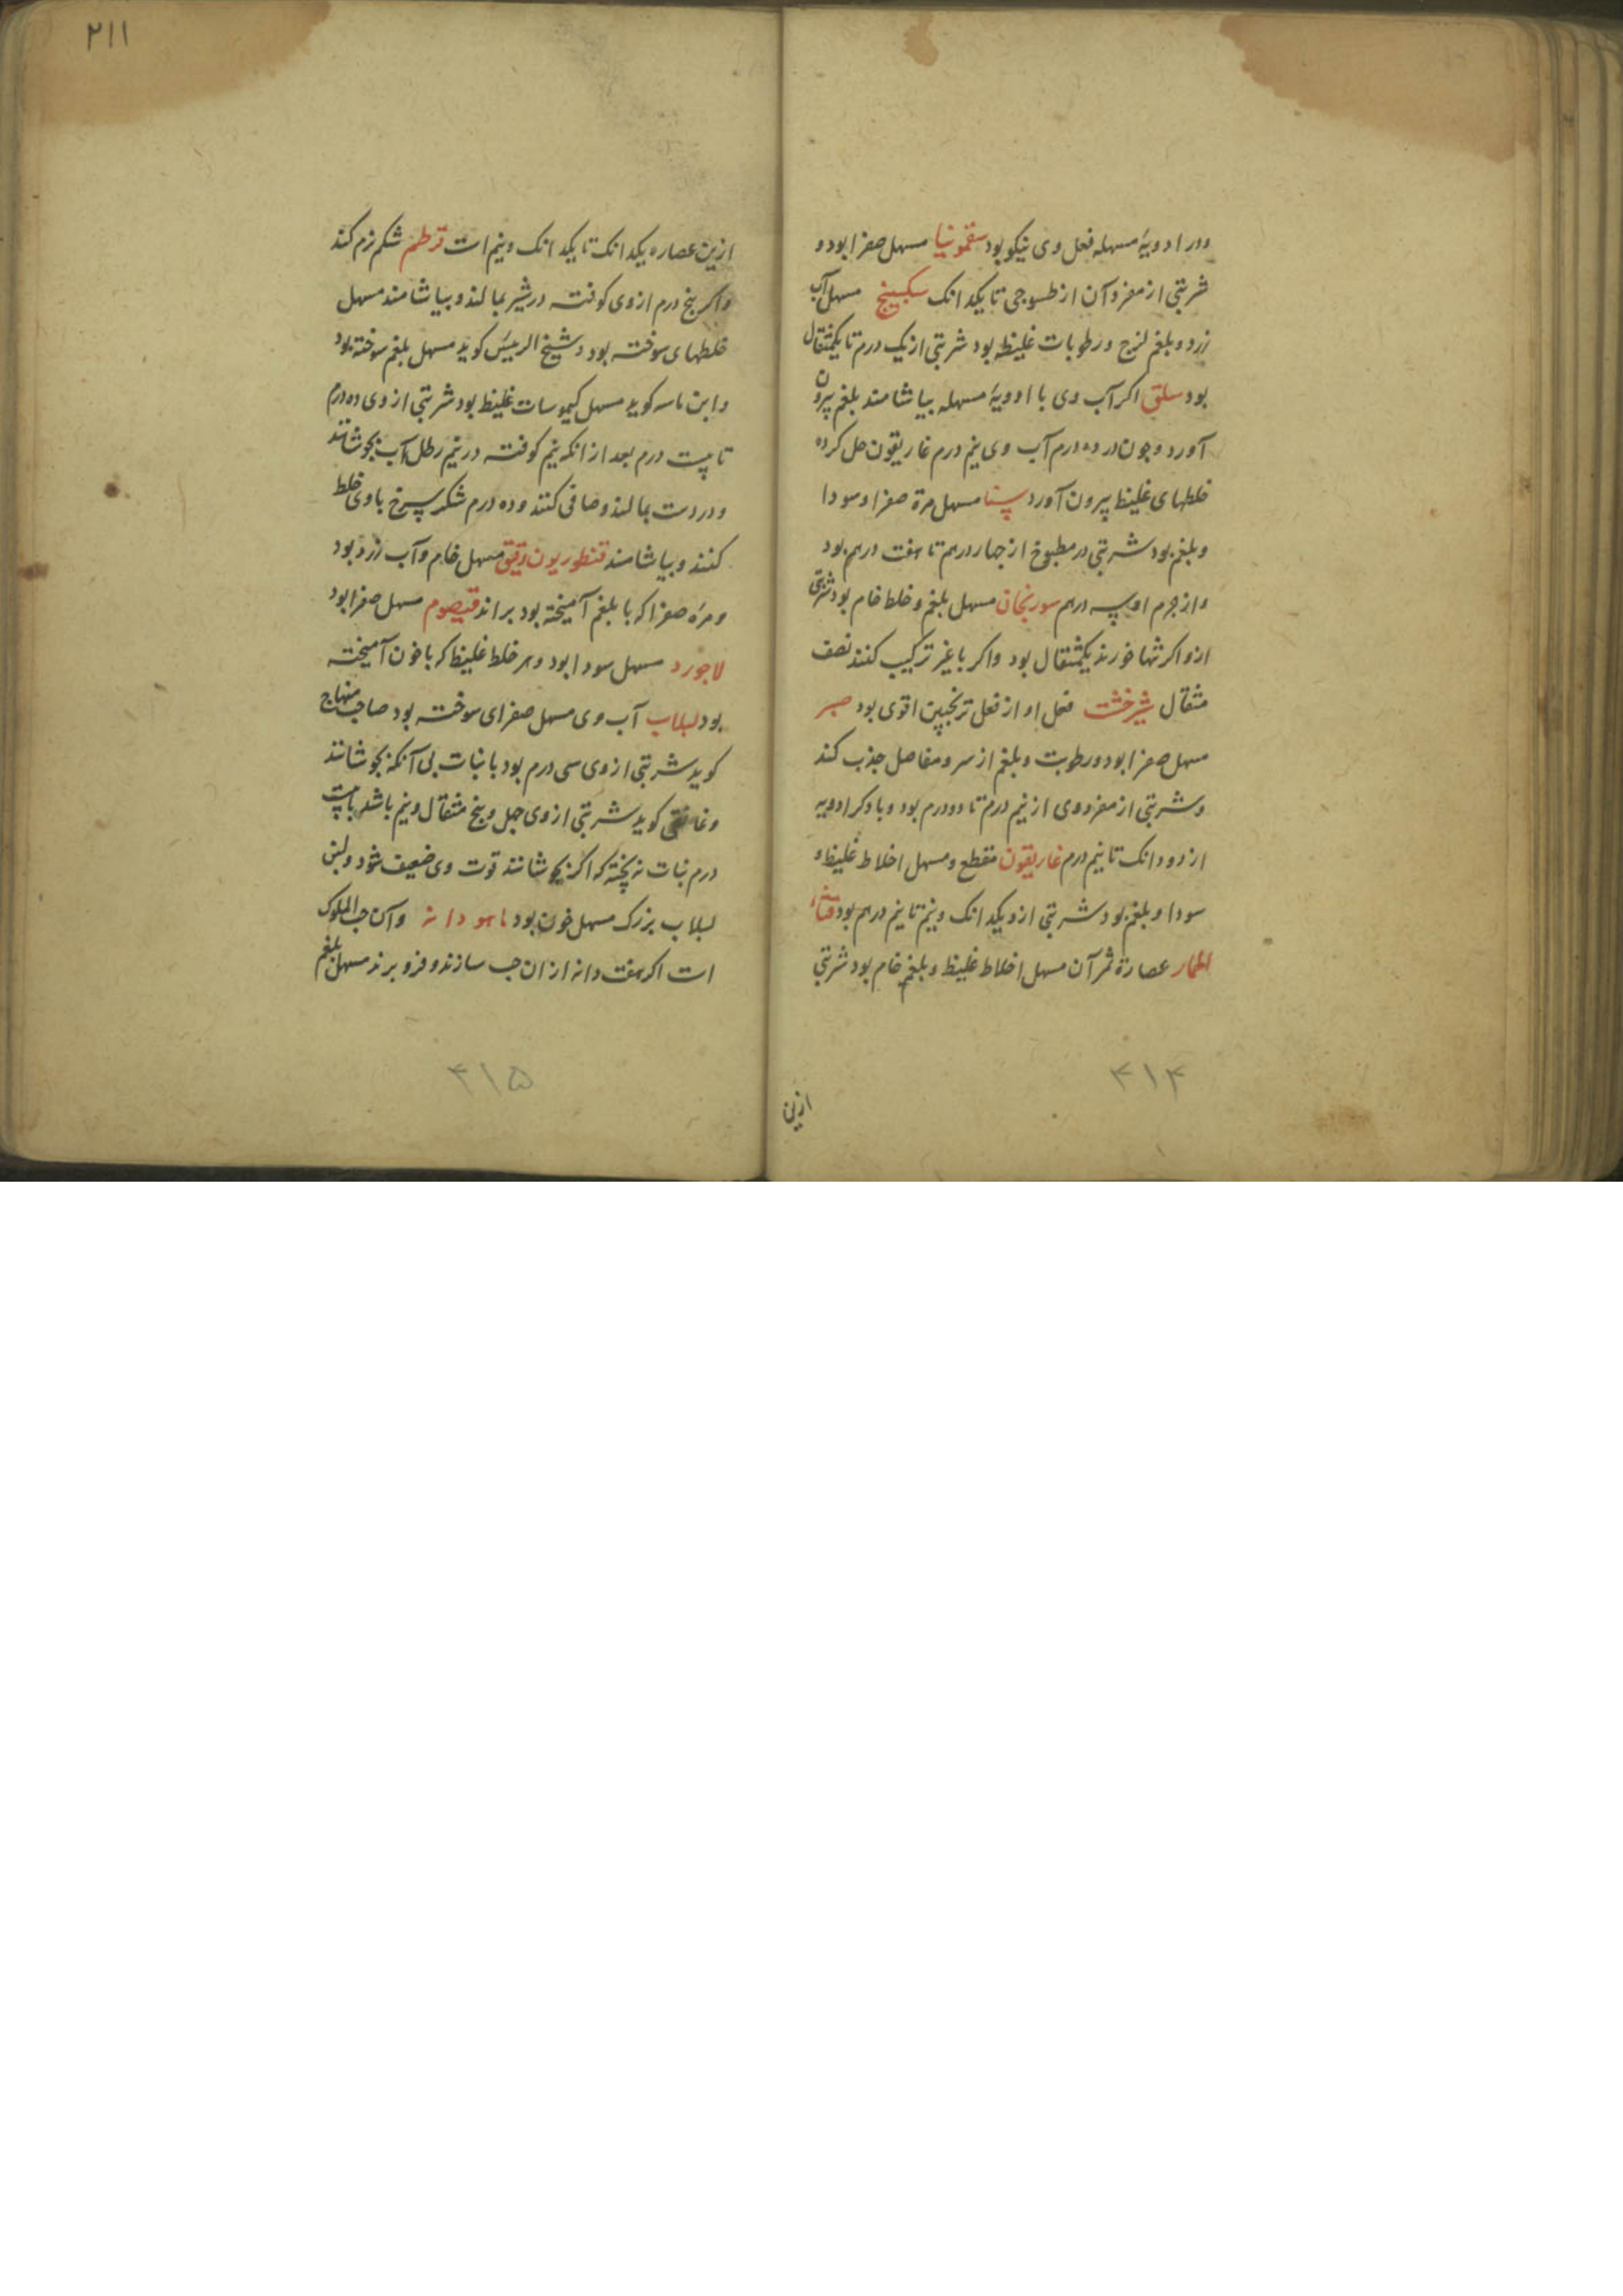 ودر ادویهٔ مسهله فعل وی نیکو بود سقمونیا مسهل صفرا بود و
شربتی از مفرد آن از طسوجی تا یکدانک سکبینج مسهل آب
زرد و بلغم لزج و رطوبات غلیظ بود شربتی از یک درم تا یکمثقال
بود سلق اکر آب وی با ادویهٔ مسهله بیاشامند بلغم بیرون
آورد و چون در ده درم آب وی نیم درم غاریقون حل کرده
خلطهای غلیظ بیرون آورد سنا مسهل مرة صفرا و سودا
و بلغم بود شربتی در مطبوخ از جهار درهم تا هفت درهم بود
و از جرم او سه درهم سورنجان مسهل بلغم و خلط خام بود شربتی
ازو اکر تنها خورند یکمثقال بود و اکر با غیر ترکیب کنند نصف
مثقال شیرخشت فعل او از فعل ترنجبین اقوی بود صبر
مسهل صفرا بود و رطوبت و بلغم از سر و مفاصل جذب کند
و شربتی از مفرد وی از نیم درم تا دو درم بود و با دکر ادویه
از دو دانک تا نیم درم غاریقون مقطع و مسهل اخلاط غلیظ و
سودا و بلغم بود شربتی ازو یکدانک و نیم تا نیم درهم بود قثاء
الحمار عصارة ثمر آن مسهل اخلاط غلیظ و بلغم خام بود شربتی
ازین
۴۱۴
۲۱۱
ازین عصاره یکدانک تا یکدانک و نیم است قرطم شکم نرم کند
و اکر پنج درم از وی کوفته در شیر بمالند و بیاشامند مسهل
خلطهای سوخته بود و شیخ الرییس کوید مسهل بلغم سوخته بود
و ابن ماسه کوید مسهل کیموسات غلیظ بود شربتی از وی ده درم
تا بیست درم بعد از انکه نیم کوفته در نیم رطل آب بجوشانند
و در دست بمالند و صافی کنند و ده درم شکر سرخ با وی خلط
کنند و بیاشامند قنطوریون دقیق مسهل خام و آب زرد بود
و مرّه صفرا که با بلغم آمیخته بود براند قیصوم مسهل صفرا بود
لاجورد مسهل سودا بود و هر خلط غلیظ که با خون آمیخته
بود لبلاب آب وی مسهل صفرای سوخته بود صاحب منهاج
کوید شربتی از وی سی درم بود با نبات بی آنکه بجوشانند
و غافقی کوید شربتی از وی جهل و پنج مثقال و نیم باشد با بیست
درم نبات نه پخته که اکر بجوشانند قوت وی ضعیف شود و لبن
لبلاب بزرک مسهل خون بود ماهودانه و آن حب الملوک
است اکر هفت دانه از ان حب سازند و فرو برند مسهل بلغم
۴۱۵